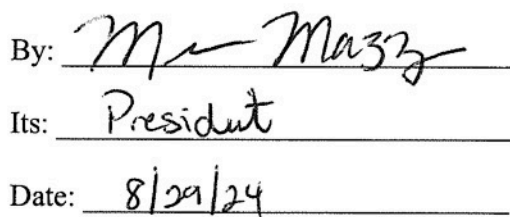 By:
Its: President
Date: 8/29/24